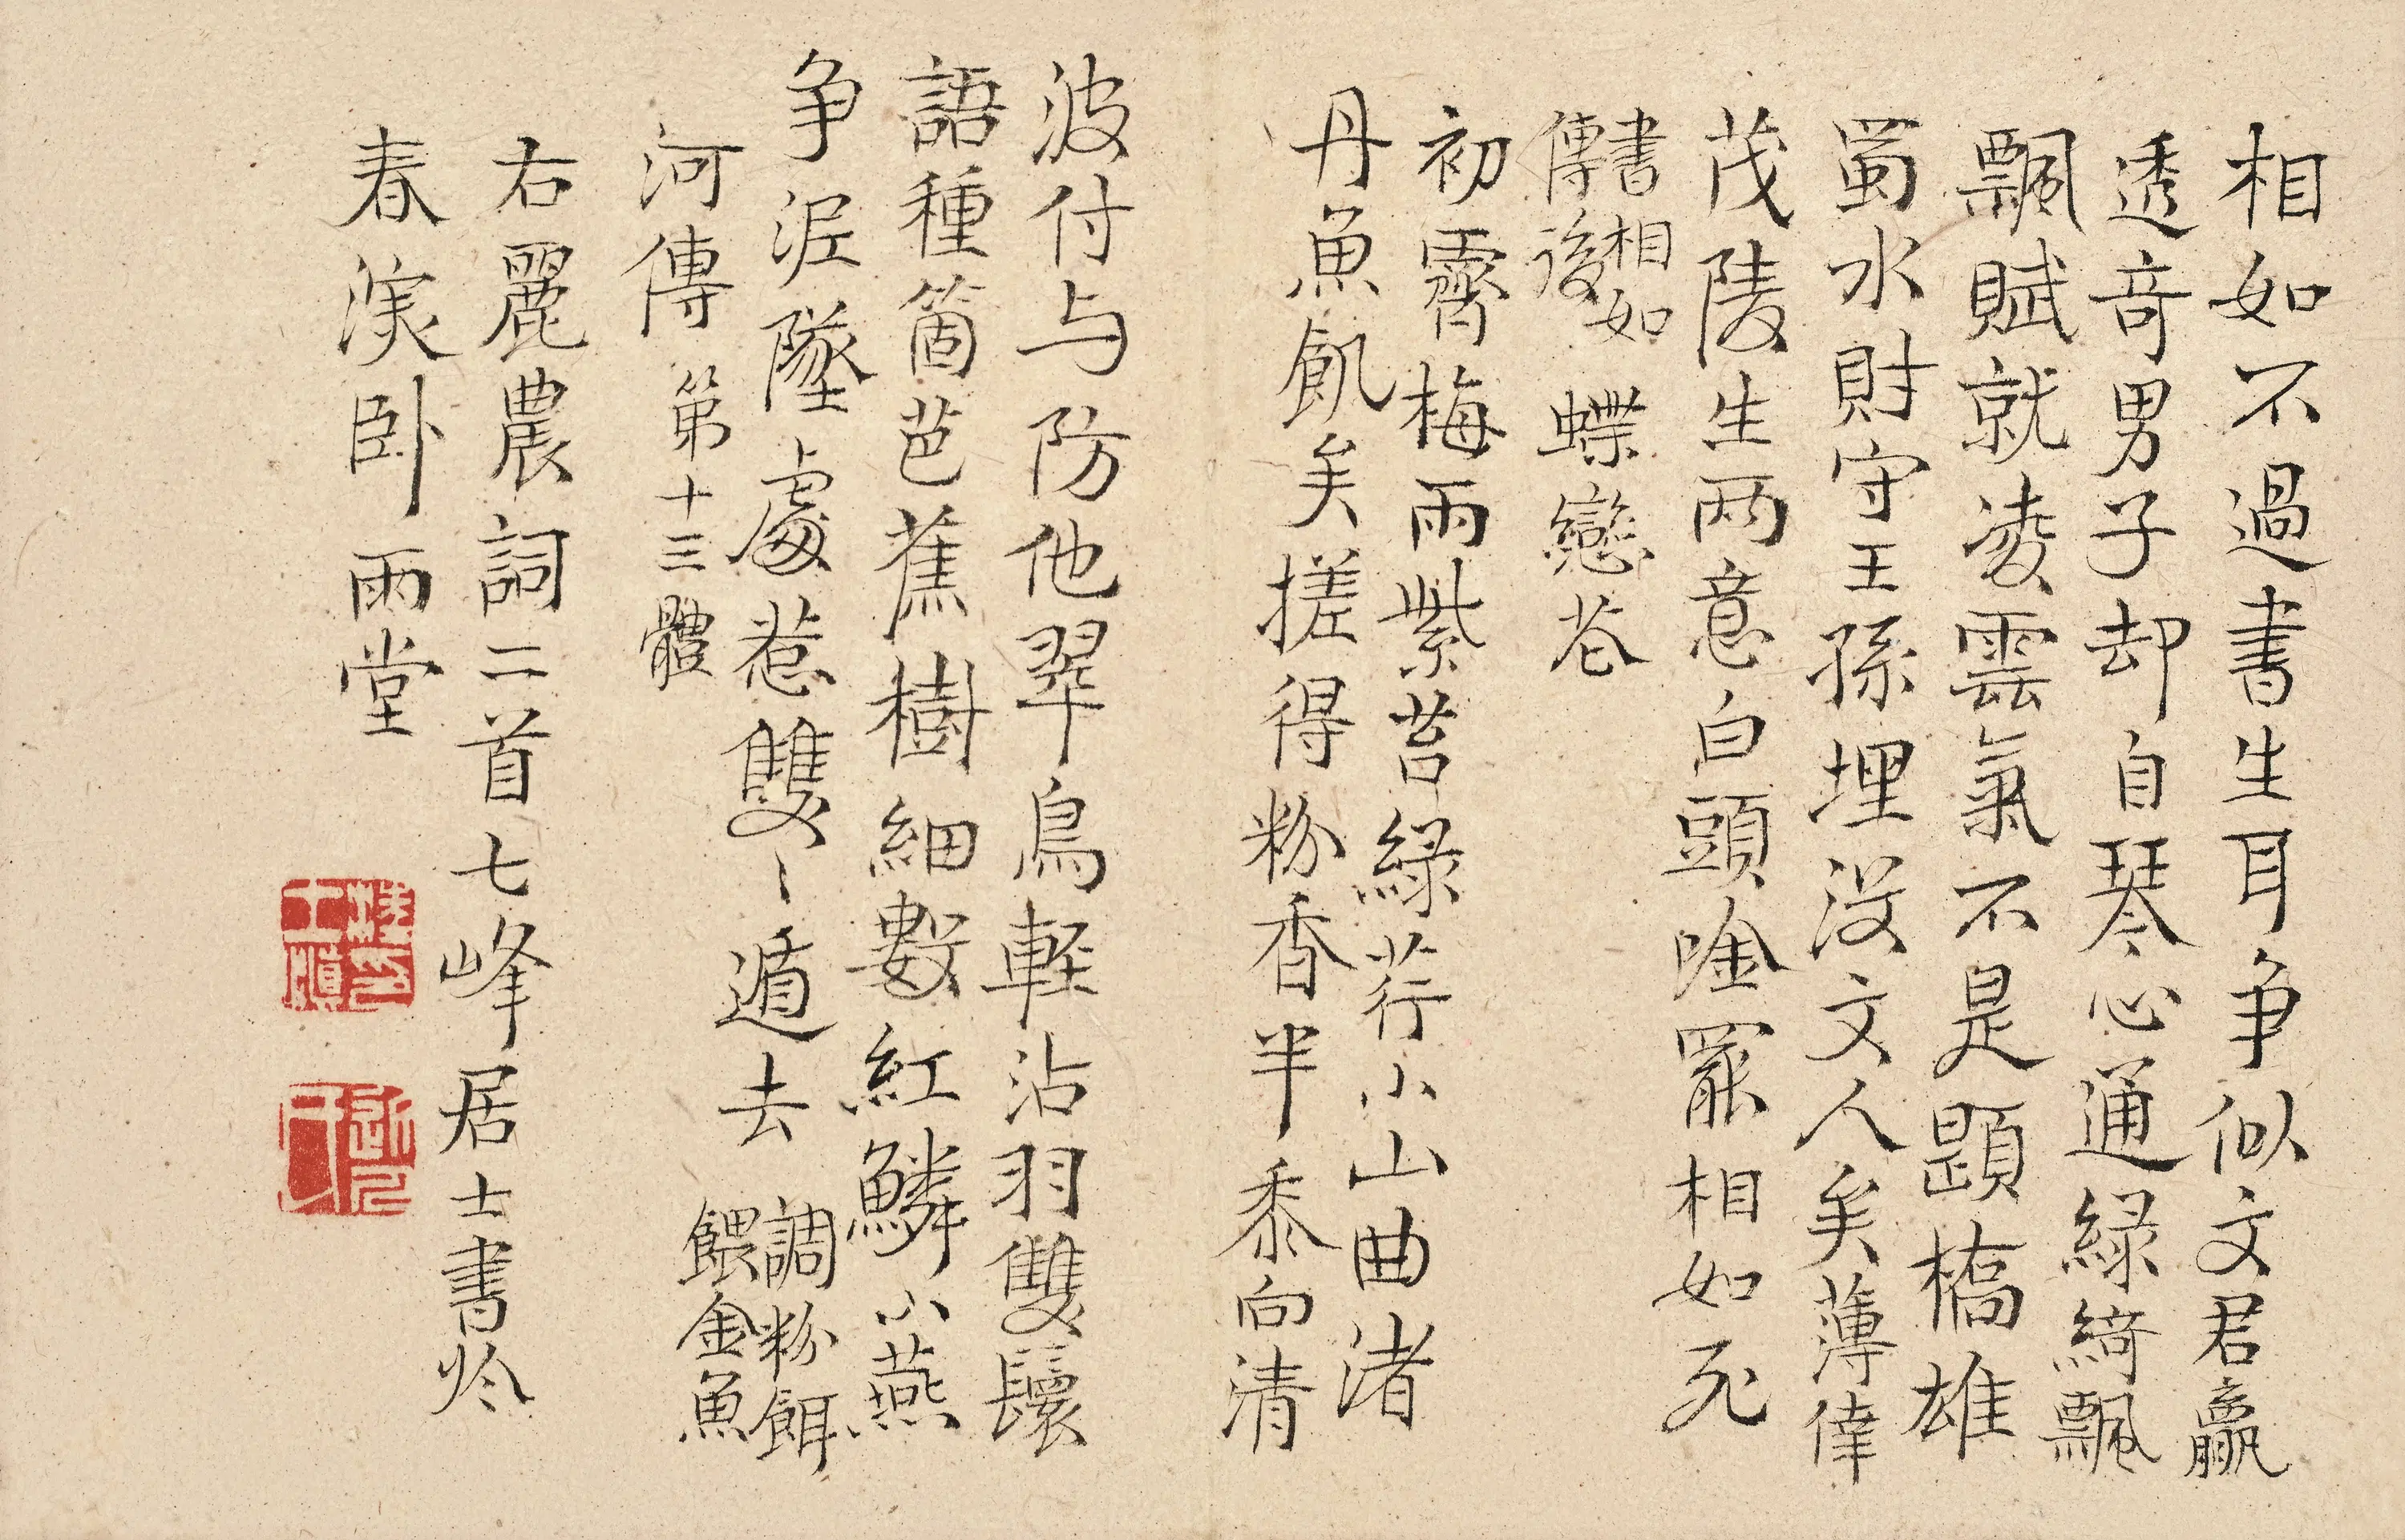 相如不過書生耳爭似文君贏
透奇男子却自琴心通綠綺飄
飄賦就凌雲氣不是題橋雄
蜀水財守王孫埋沒文人矣薄倖
茂陵生两意白頭唫罷相如死
書相如
傳後
蝶戀花
初霽梅雨紫苔綠荇小山曲渚
丹魚飢矣搓得粉香半黍向清
波付与防他翠鳥輕沾羽雙鬟
語種箇芭蕉樹細數紅鱗小燕
爭泥墜處惹雙〻遁去
調粉餌
餵金魚
河傳 第十三體
右麗農詞二首七峰居士書於
春演卧雨堂